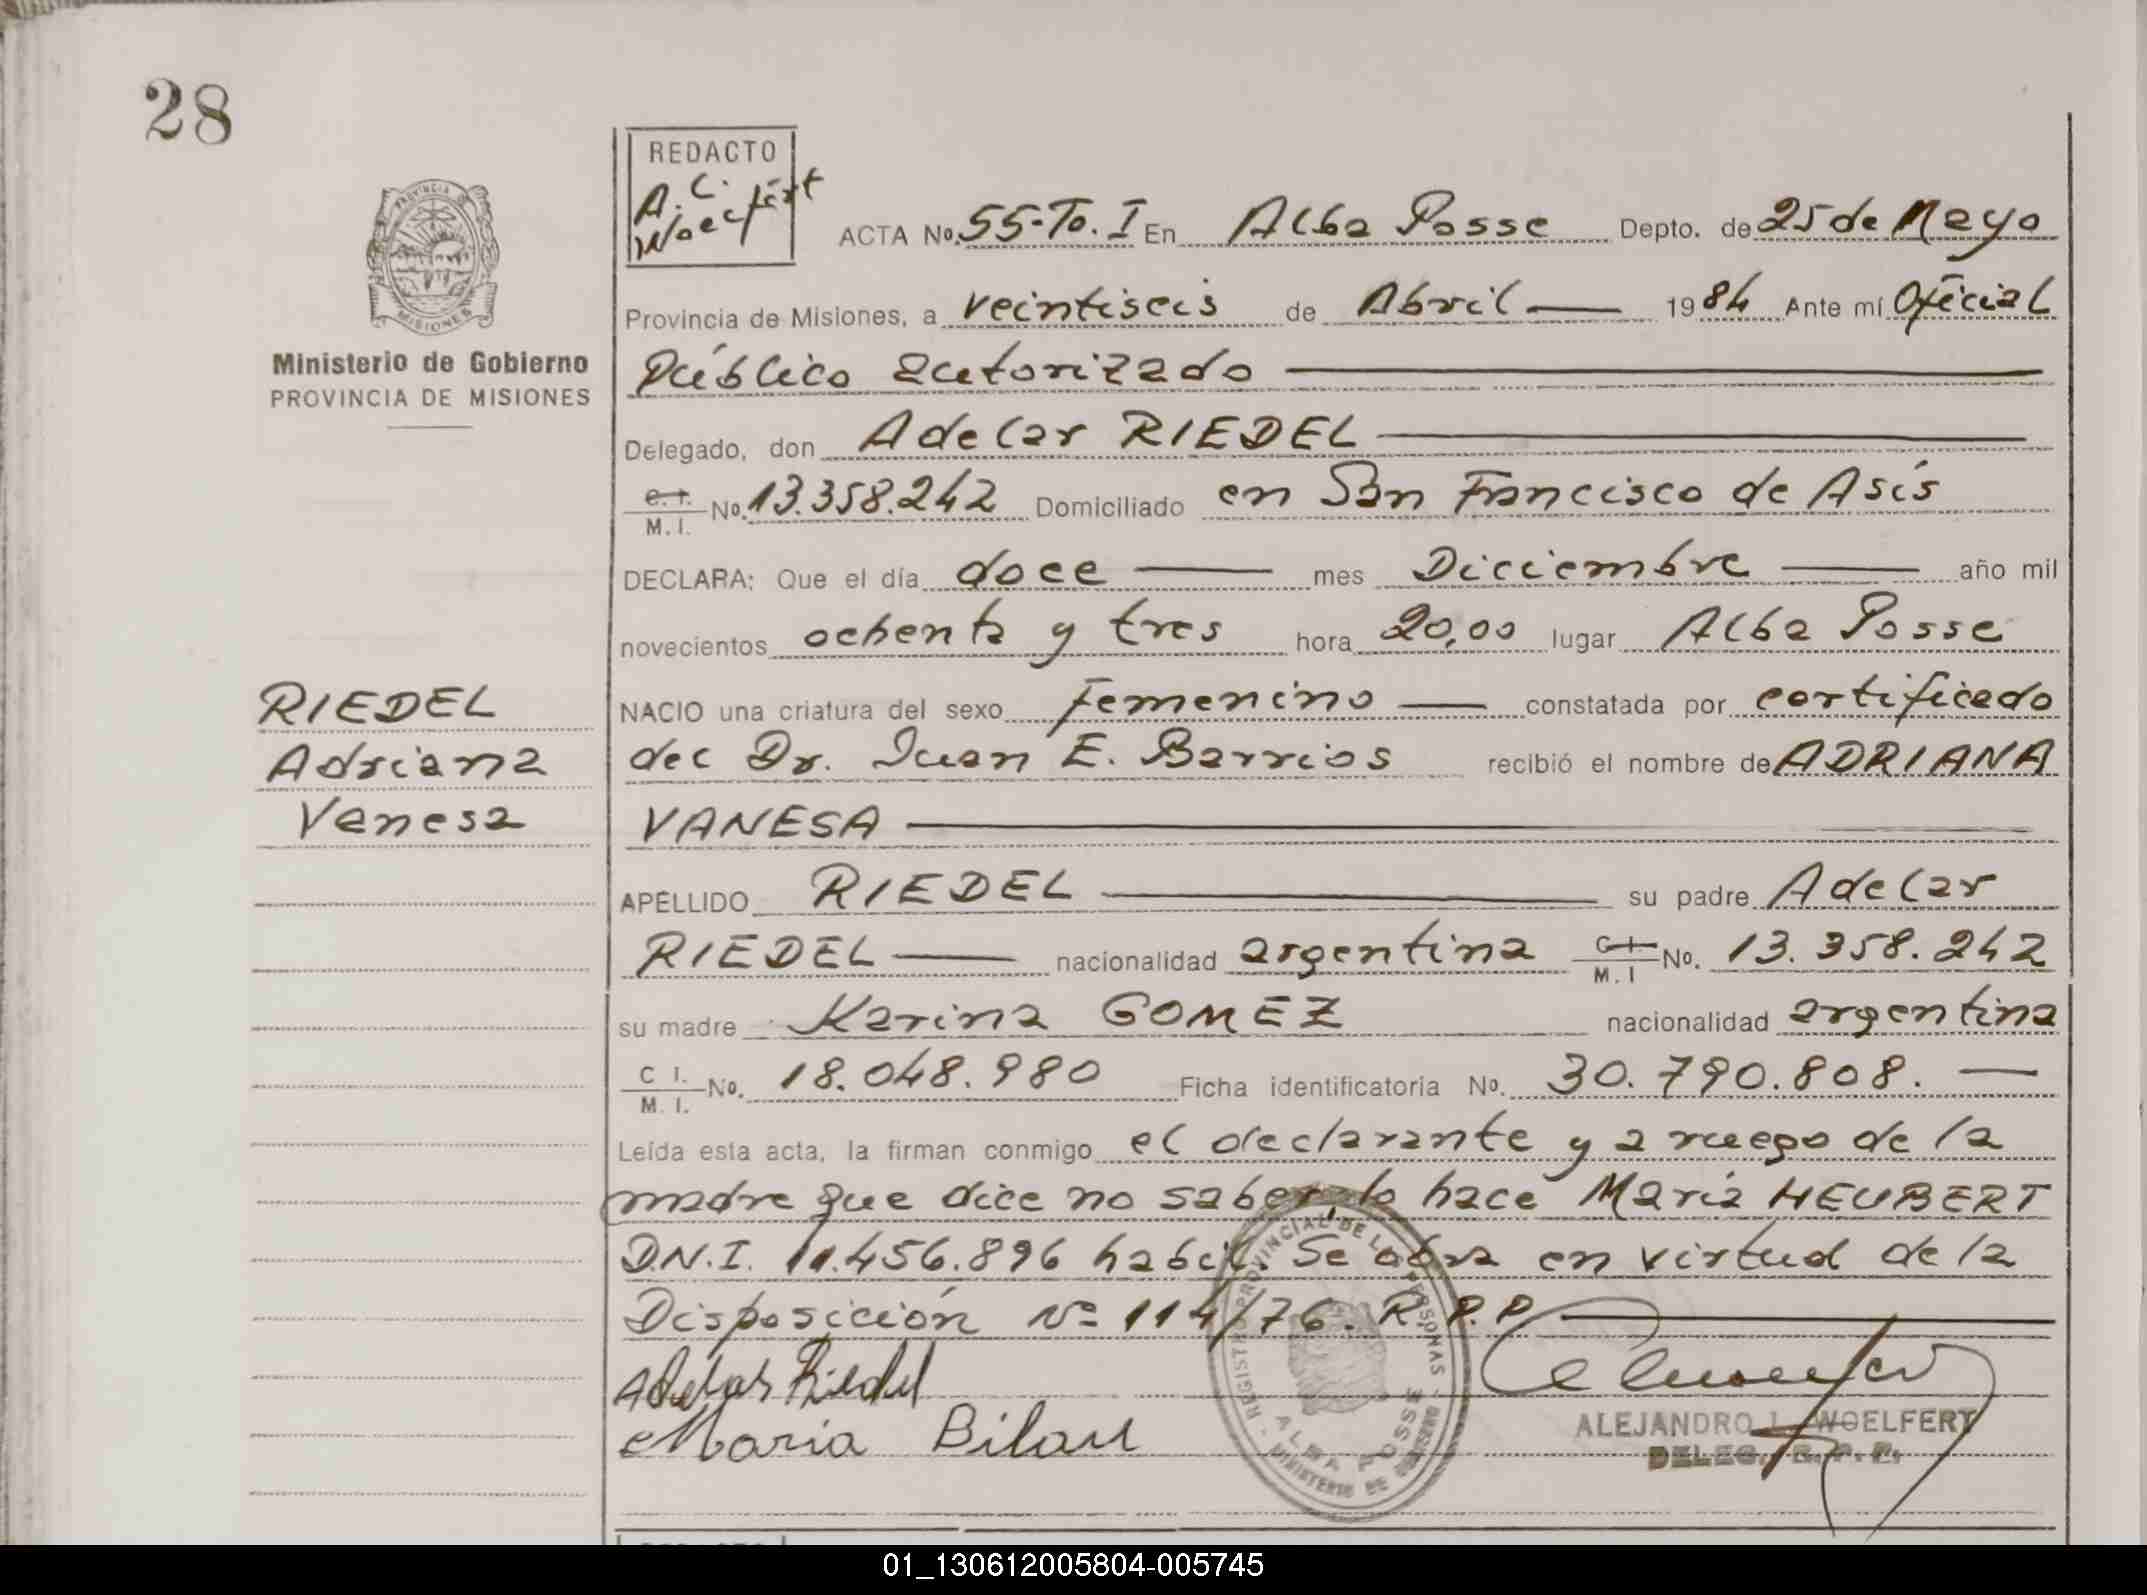 28
REDACTO
A. C.
Woelfert
PROVINCIA
MISIONES
Ministerio de Gobierno
PROVINCIA DE MISIONES
ACTA No. 55-To. I En Alba Posse Depto. de 25 de Mayo
Provincia de Misiones, a veintiseis de Abril 1984 Ante mí Oficial
Público autorizado
Delegado, don Adelar RIEDEL
C. I. M. I. No. 13.358.242 Domiciliado en San Francisco de Asís
DECLARA: Que el día doce mes Diciembre año mil
novecientos ochenta y tres hora 20,00 lugar Alba Posse
RIEDEL
NACIO una criatura del sexo femenino constatada por certificado
Adriana
del Dr. Juan E. Barrios recibió el nombre de ADRIANA
Vanesa
VANESA
APELLIDO RIEDEL su padre Adelar
RIEDEL nacionalidad argentina C. I. M. I No. 13.358.242
su madre Karina GOMEZ nacionalidad argentina
C I. M. I. No. 18.048.980 Ficha identificatoria No. 30.790.808.
Leída esta acta, la firman conmigo el declarante y a ruego de la
madre que dice no saber, lo hace María HEUBERT
D.N.I. 11.456.896 habil. Se obra en virtud de la
Disposición Nº 114/76. R.P.P.
Adelar Riedel
Maria Bilau
REGISTRO PROVINCIAL DE LAS PERSONAS
ALBA POSSE
MINISTERIO DE GOBIERNO
ALEJANDRO L. WOELFERT
DELEG. R.P.P.
01_130612005804-005745